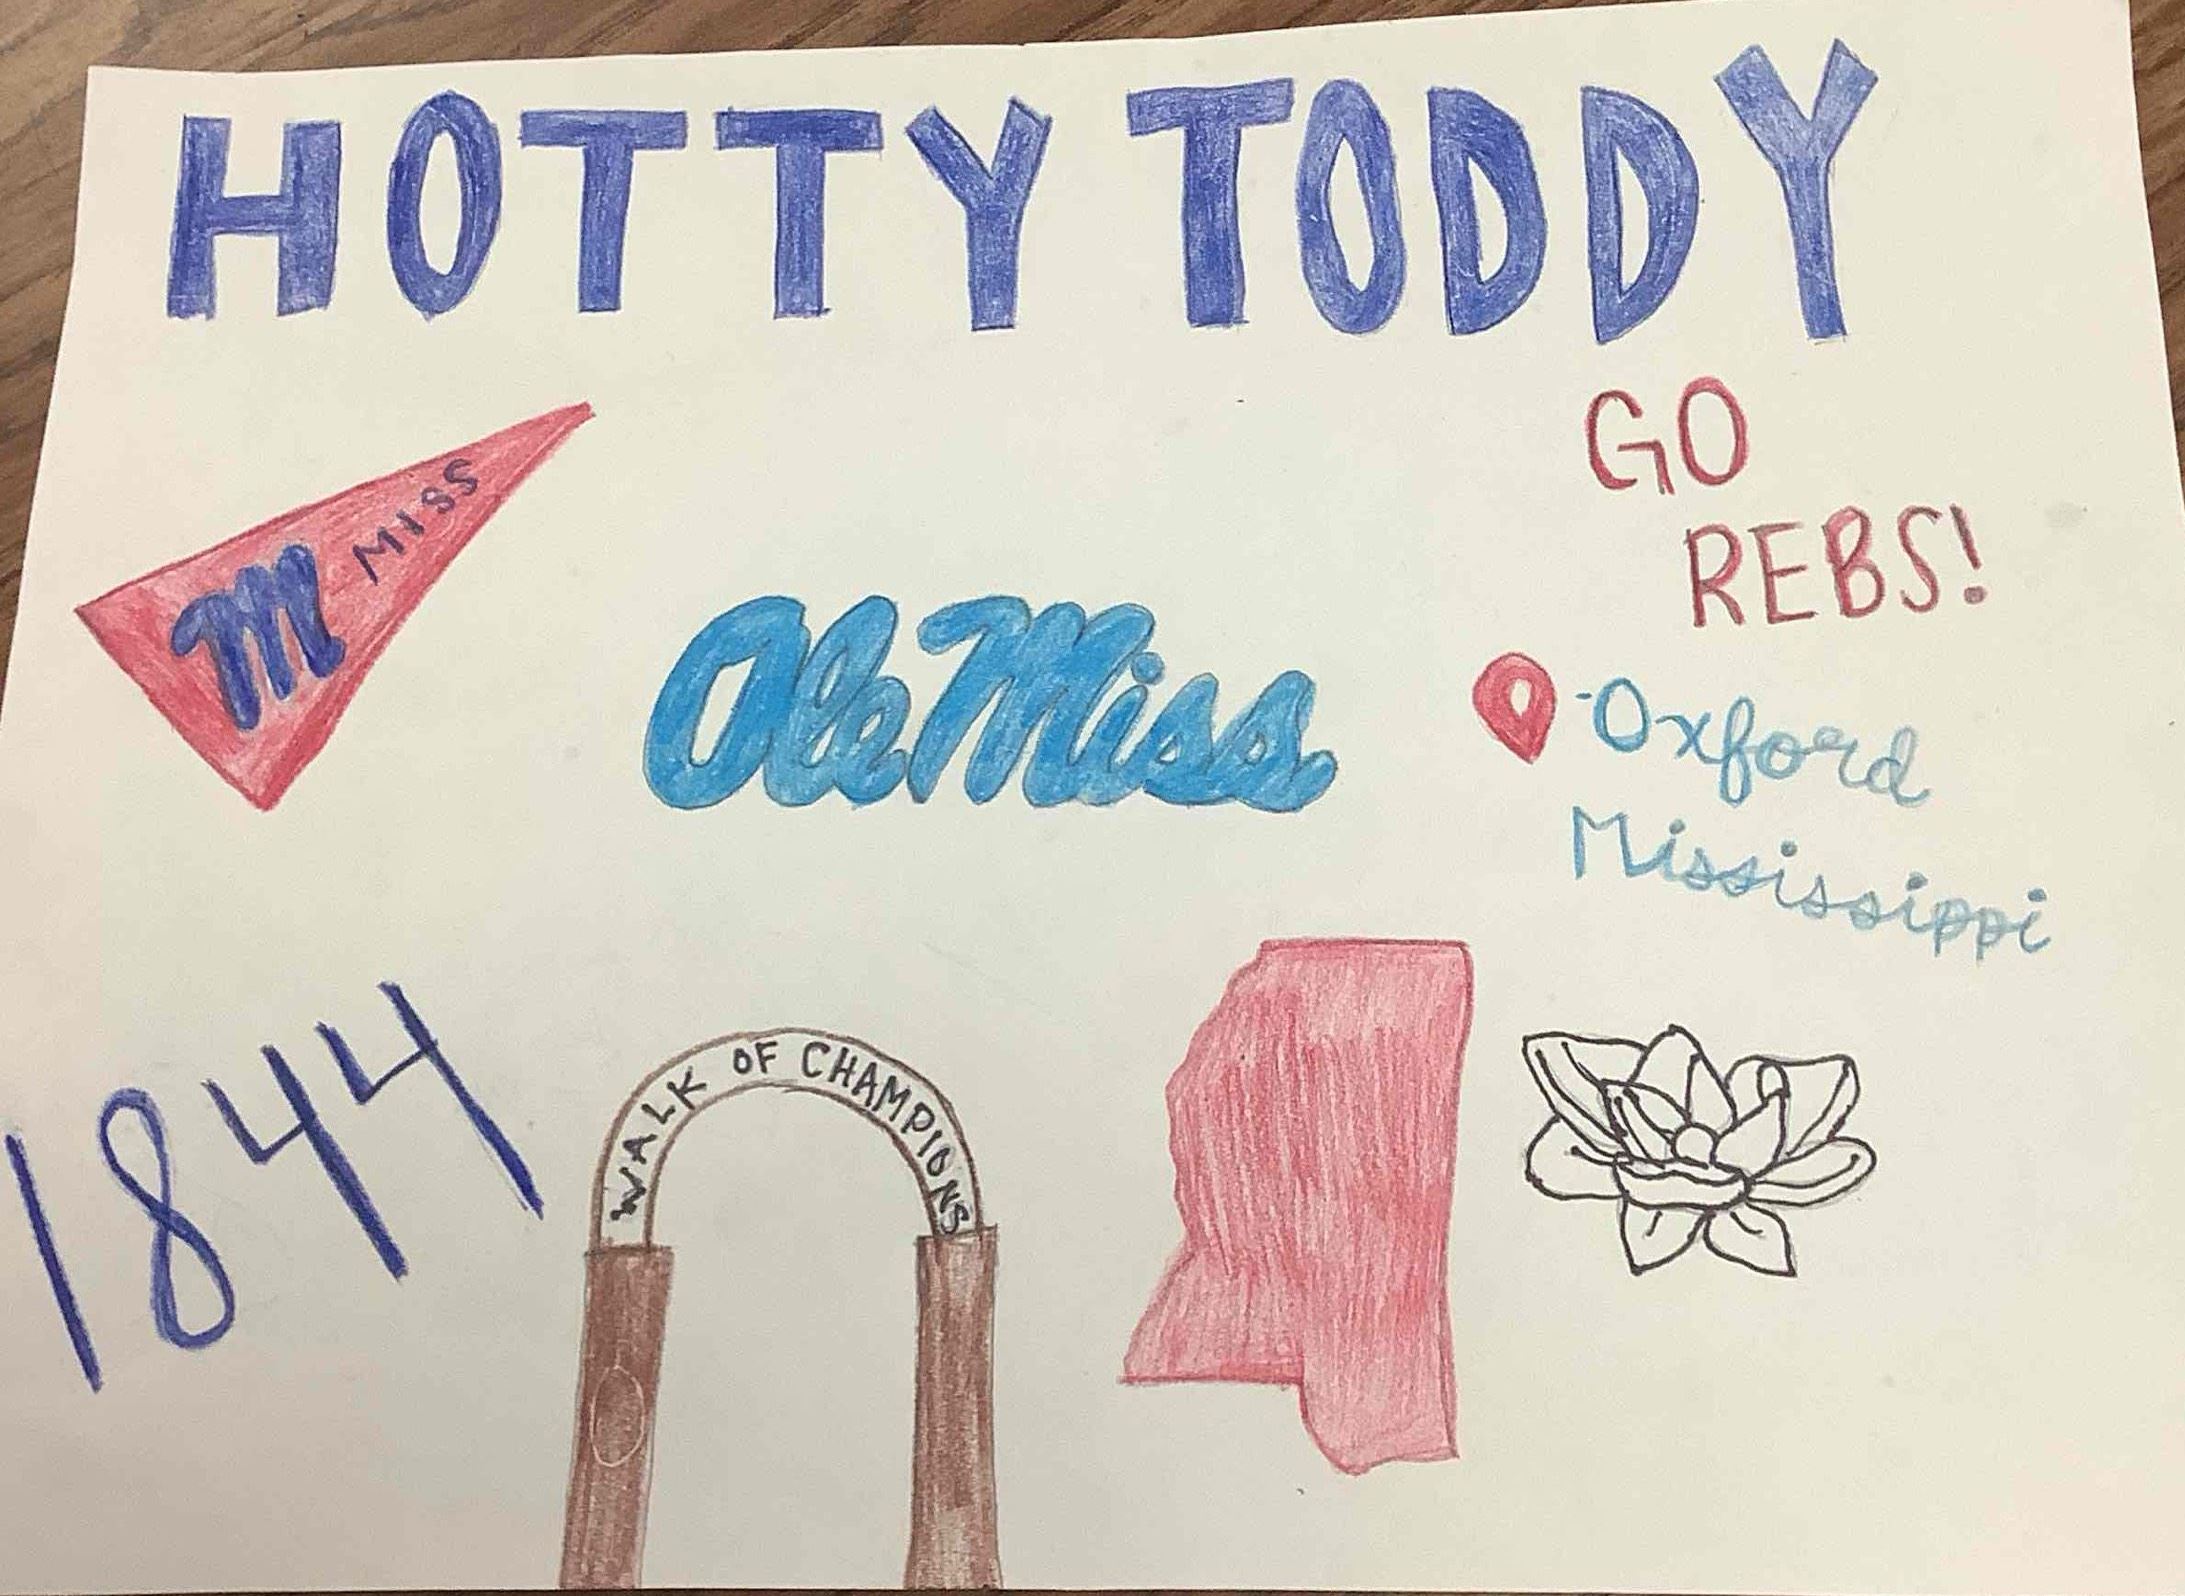 HOTTY TODDY
GO
REBS!
M MISS
Ole Miss
-Oxford
Mississippi
1844
WALK OF CHAMPIONS